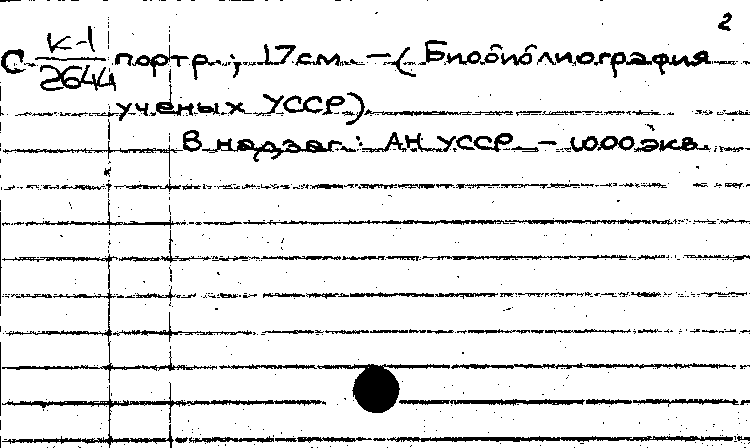 2
С К-1 портр.; 17 см. — (Биобиблиография
2644
ученых УССР).
В надзаг.: АН УССР — 1000 экв.